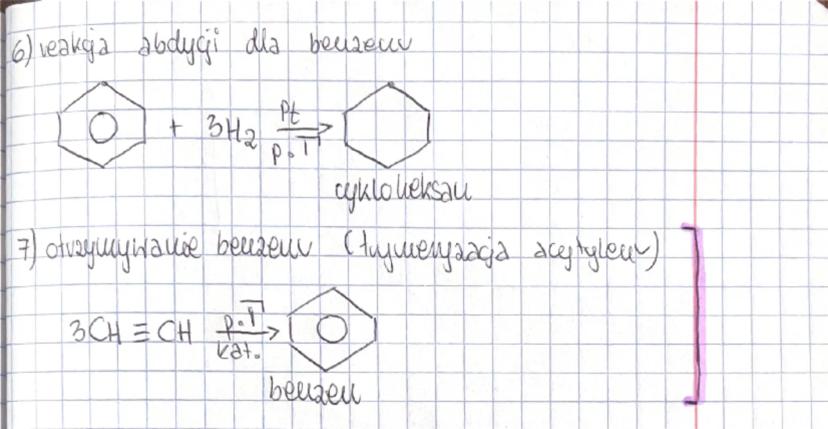 6) reakcja abdycji dla benzenu
+ 3H2 Pt p.T
cykloheksan
7) otrzymywanie benzenu (trymeryzacja acetylenu)
3CH≡CH p.T kat.
benzen